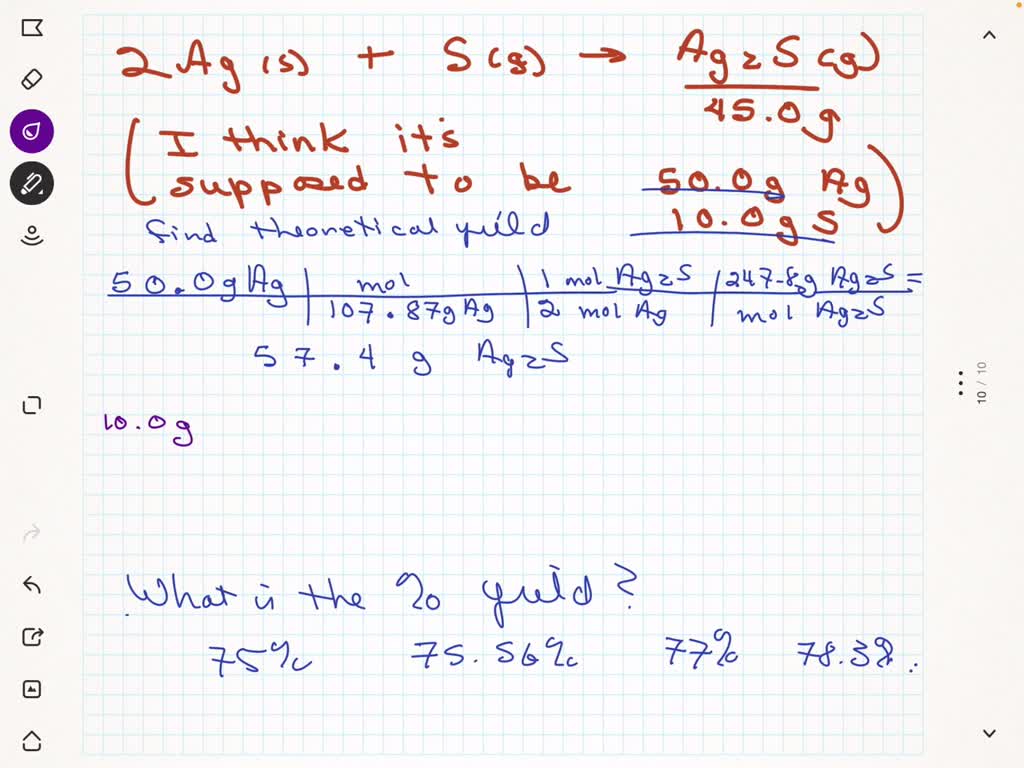 2Ag(s) + S(g) → Ag2S(g)
45.0g
(I think it's
supposed to be 50.0g Ag
10.0g S)
find theoretical yield
50.0g Ag | mol | 1 mol Ag2S | 247.8g Ag2S =
107.87g Ag | 2 mol Ag | mol Ag2S
57.4 g Ag2S
10.0g
10 / 10
What is the % yield?
75% 75.56% 77% 78.3%.